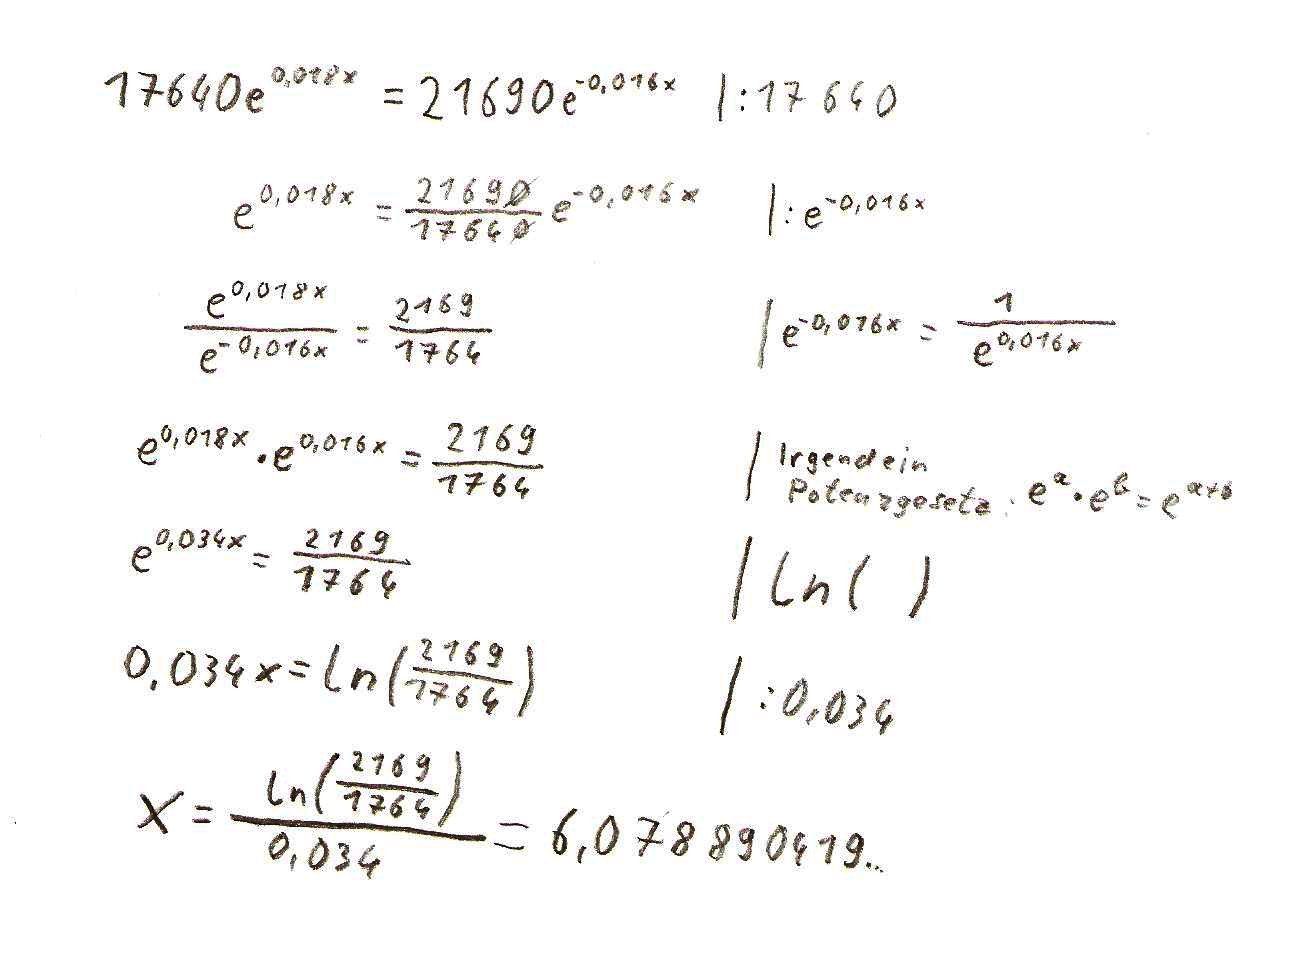 17640e^0,018x = 21690e^-0,016x |:17640
e^0,018x = 21690/17640 e^-0,016x |:e^-0,016x
e^0,018x/e^-0,016x = 2169/1764 | e^-0,016x = 1/e^0,016x
e^0,018x · e^0,016x = 2169/1764 | Irgendein
Potenzgesetz: e^a · e^b = e^a+b
e^0,034x = 2169/1764 | ln( )
0,034x = ln(2169/1764) |:0,034
x = ln(2169/1764)/0,034 = 6,078890419..